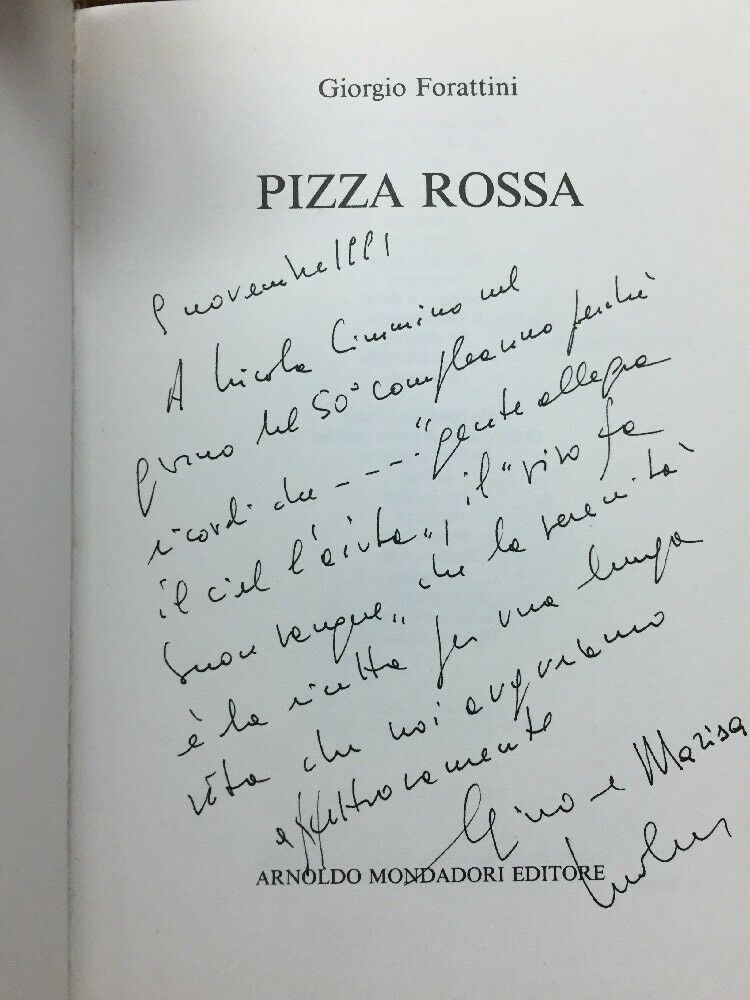 Giorgio Forattini
PIZZA ROSSA
novembre 1991
A Nicola Cimmino nel
giorno del 50° compleanno perché
ricordi che ---- "gente allegra
il ciel l'aiuta", il "riso fa
buon sangue" che la serenità
è la ricetta per una lunga
vita che noi auguriamo
affettuosamente
Gino e Marisa
ARNOLDO MONDADORI EDITORE